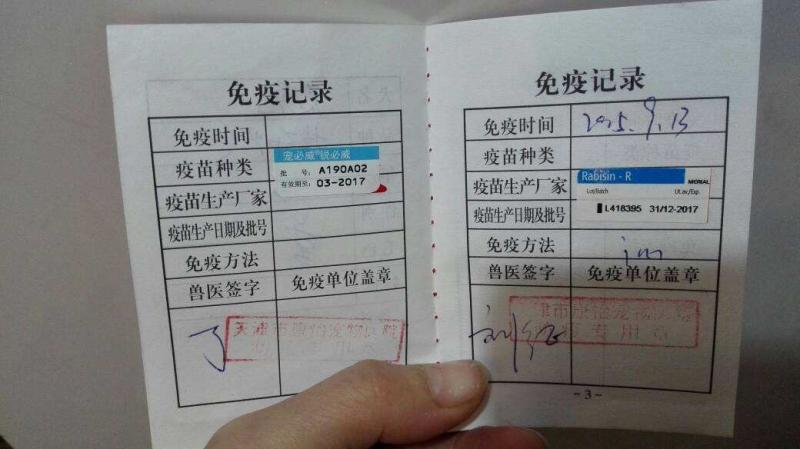 免疫记录
免疫时间
疫苗种类
宠必威®锐必威
批 号: A190A02
有效期至: 03-2017
疫苗生产厂家
疫苗生产日期及批号
免疫方法
兽医签字
免疫单位盖章
天津市康怡宠物医院
免疫记录
免疫时间
2015.9.13
疫苗种类
疫苗生产厂家
Rabisin - R
MERIAL
Lot/Batch
Ut.av./Exp.
L418395 31/12-2017
疫苗生产日期及批号
免疫方法
im
兽医签字
免疫单位盖章
津市康怡宠物
专用章
- 3 -